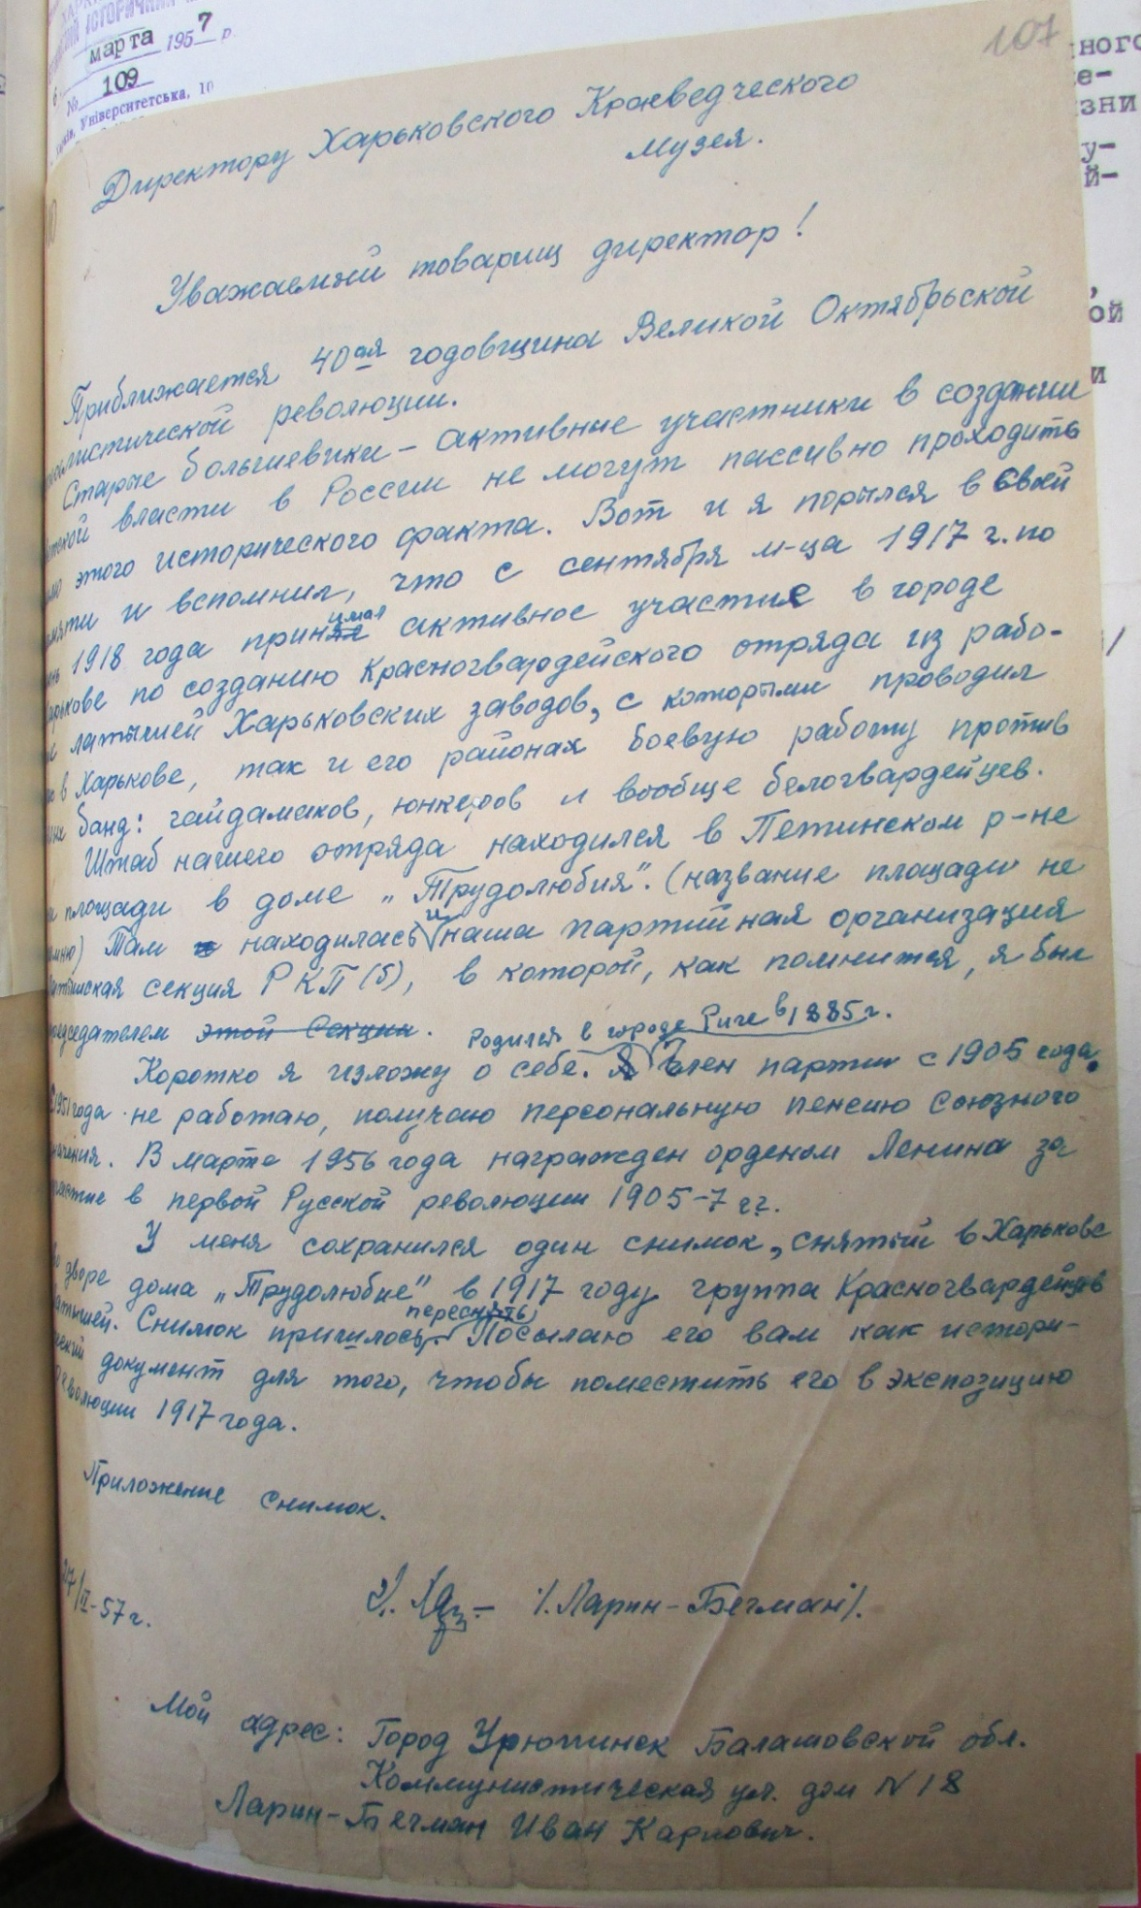 марта 1957 р.
№ 109
Університетська, 10
107
Директору Харьковского Краеведческого
Музея.
Уважаемый товарищ директор!
Приближается 40ая годовщина Великой Октябрьской
листической революции.
Старые большевики – активные участники в создании
власти в России не могут пассивно проходить
этого исторического факта. Вот и я порылся в своей
мяти и вспомнил, что с сентября м-ца 1917 г. по
нь 1918 года принимал активное участие в городе
рькове по созданию Красногвардейского отряда из рабо-
х латышей Харьковских заводов, с которыми проводил
в Харькове, так и его районах боевую работу против
банд: гайдамаков, юнкеров и вообще белогвардейцев.
Штаб нашего отряда находился в Петинском р-не
площади в доме „Трудолюбия". (название площади не
мню) Там находилась и наша партийная организация
тышская секция РКП(б), в которой, как помнится, я был
редседателем этой секции.
Родился в городе Риге в 1885 г.
Коротко я изложу о себе. Я Член партии с 1905 года.
1951 года не работаю, получаю персональную пенсию союзного
начения. В марте 1956 года награжден орденом Ленина за
частие в первой Русской революции 1905-7 гг.
У меня сохранился один снимок, снятый в Харькове
во дворе дома „Трудолюбие" в 1917 году группа Красногвардейцев
латышей. Снимок пришлось переснять. Посылаю его вам как истори-
ческий документ для того, чтобы поместить его в экспозицию
революции 1917 года.
Приложение снимок.
27/II-57 г.
/. Ларин-Бегман/.
Мой адрес: Город Урюпинск Балашовской обл.
Коммунистическая ул. дом N 18
Ларин-Бегман Иван Карлович.